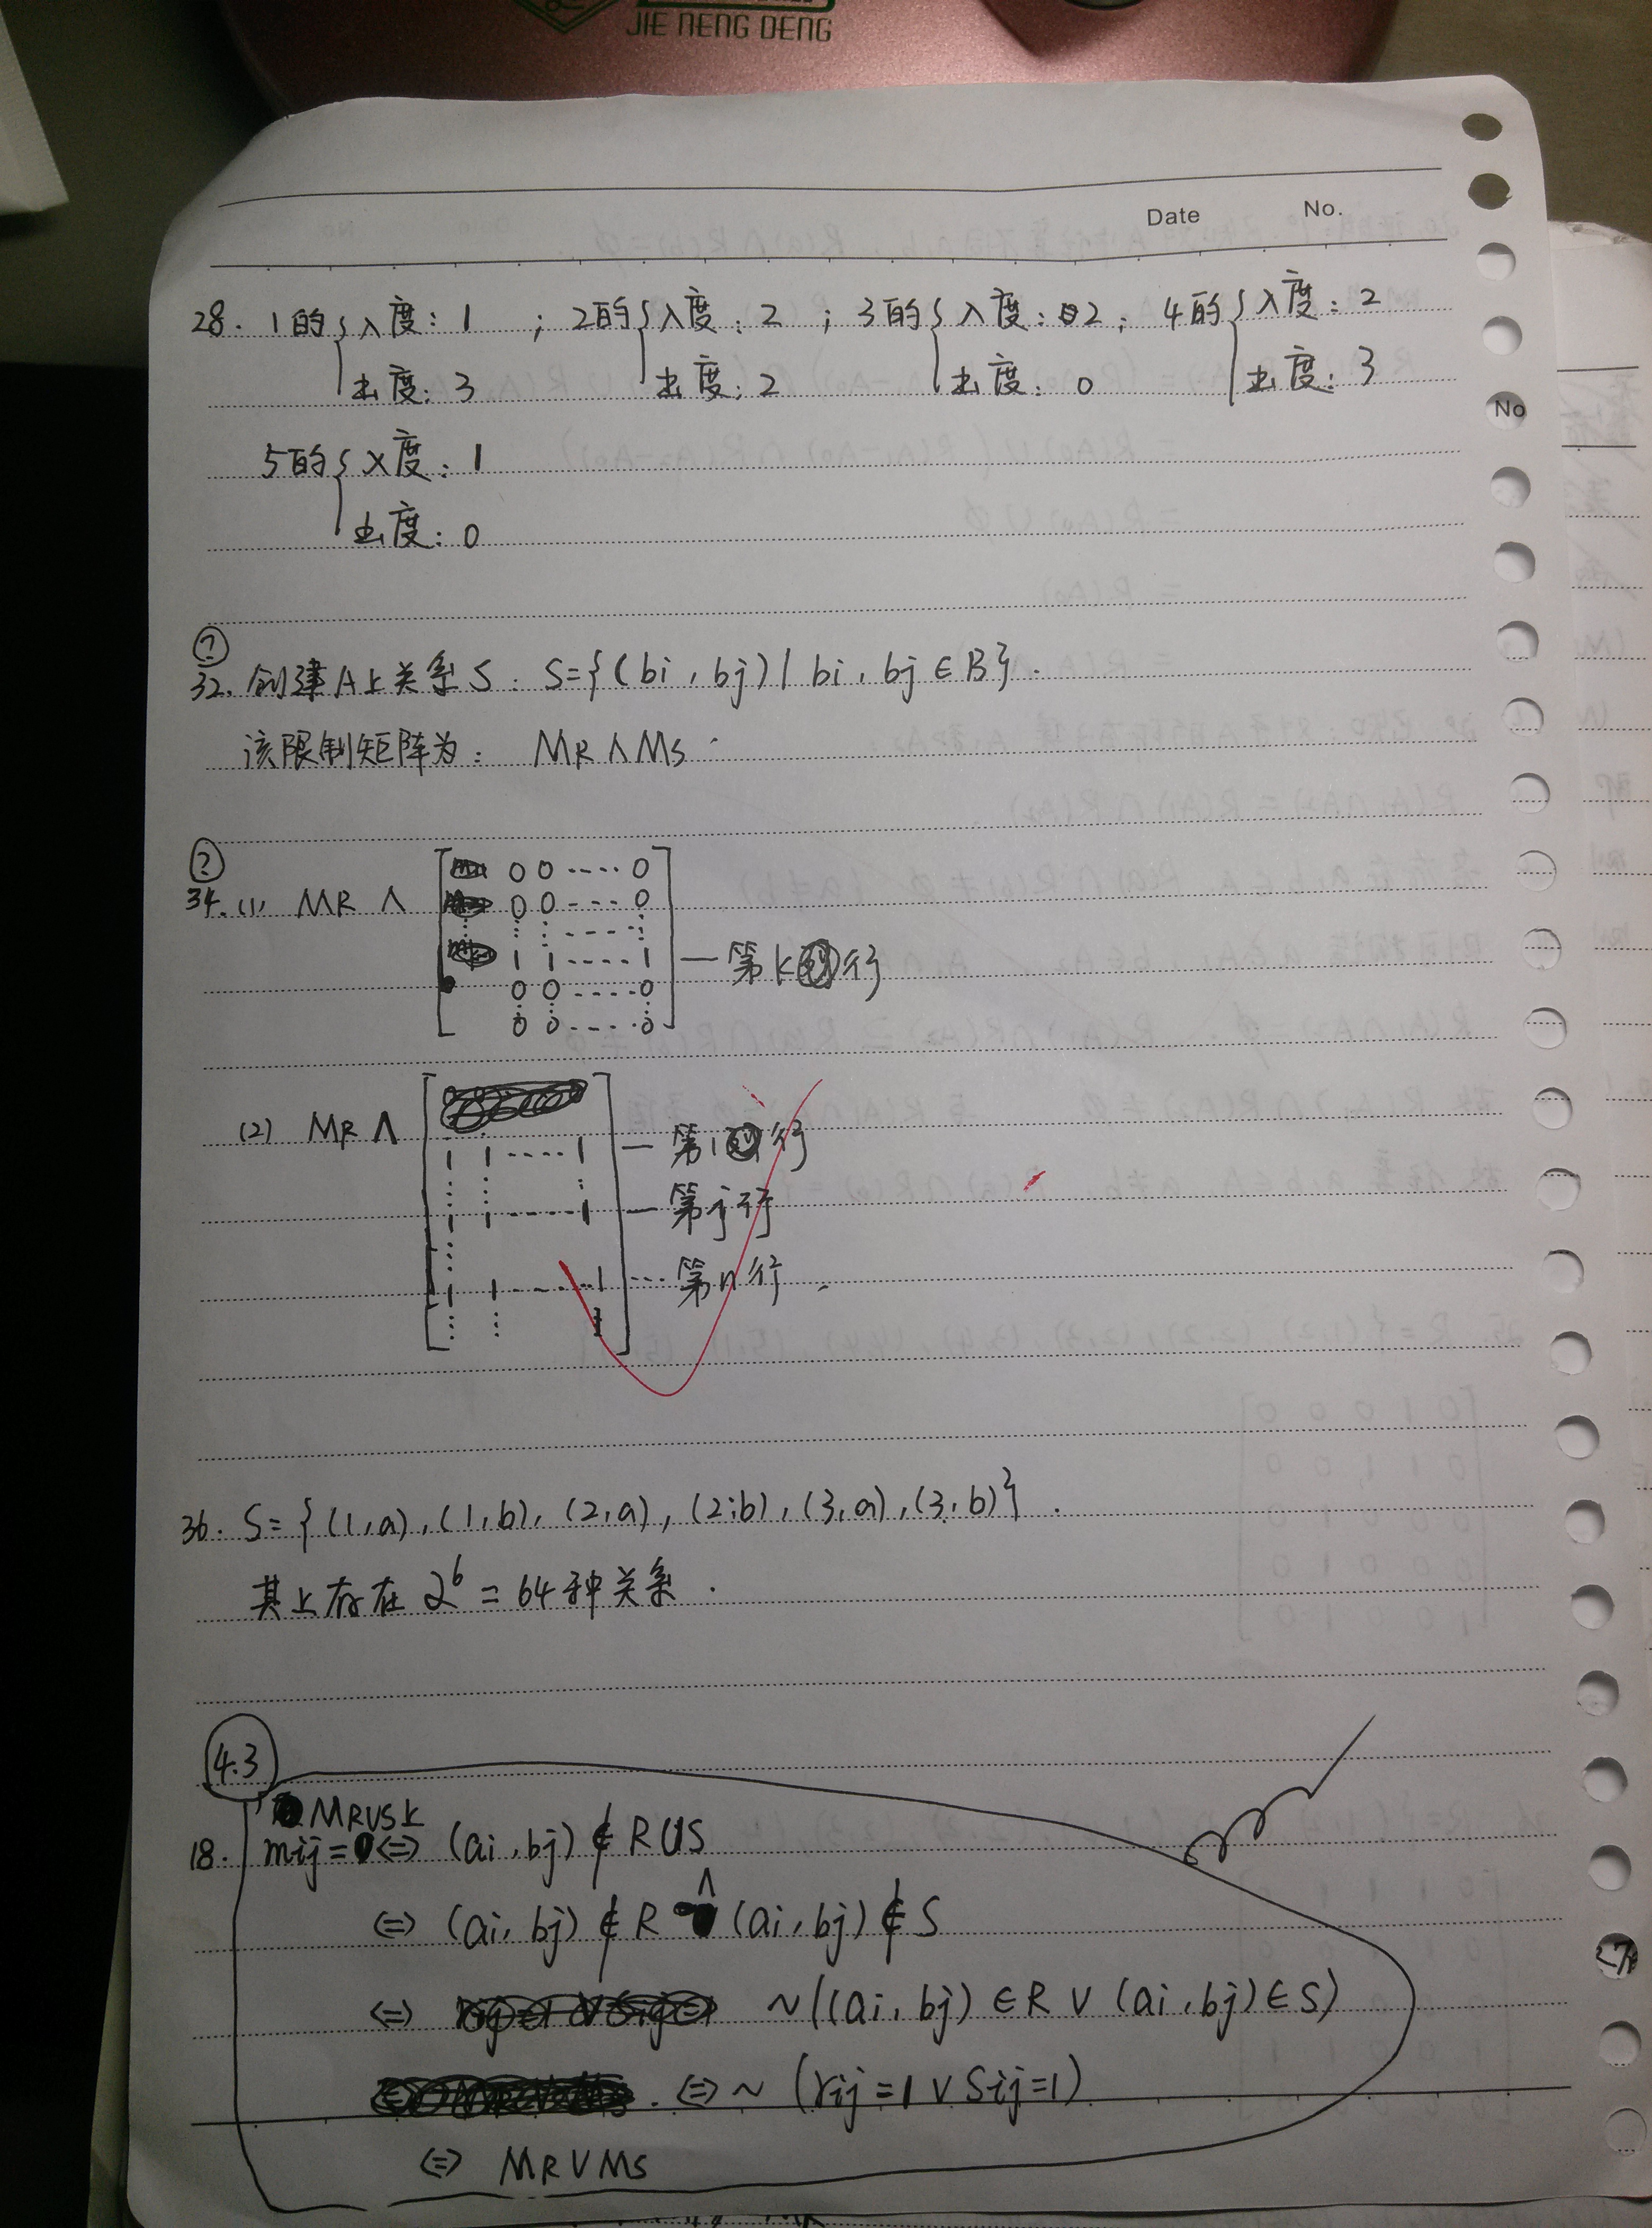 JIE NENG DENG
Date No.
28. 1的{入度: 1 ; 2的{入度: 2 ; 3的{入度: 2; 4的{入度: 2
出度: 3 出度: 2 出度: 0 出度: 3
No
5的{入度: 1
出度: 0
?
32. 创建A上关系S. S={(bi, bj) | bi, bj ∈ B}.
该限制矩阵为: MR ∧ MS.
?
34. (1) MR ∧
0 0 ---- 0
0 0 ---- 0
⋮ ⋮ ---- ⋮
1 1 ---- 1 — 第k行
0 0 ---- 0
0 0 ---- 0
(2) MR ∧
1 1 ---- 1 — 第i行
⋮ ⋮ ⋮
1 1 ---- 1 — 第j行
⋮
1 1 ---- 1 --- 第n行.
⋮ ⋮
36. S={(1,a),(1,b),(2,a),(2,b),(3,a),(3,b)}.
其上存在 2^6 = 64种关系.
4.3
MR∪S上
18. mij=0 ⇔ (ai, bj) ∉ R∪S
⇔ (ai, bj) ∉ R ∧ (ai, bj) ∉ S
⇔ ~((ai, bj) ∈ R ∨ (ai, bj) ∈ S)
⇔ ~ (rij=1 ∨ Sij=1)
⇔ MR ∨ MS